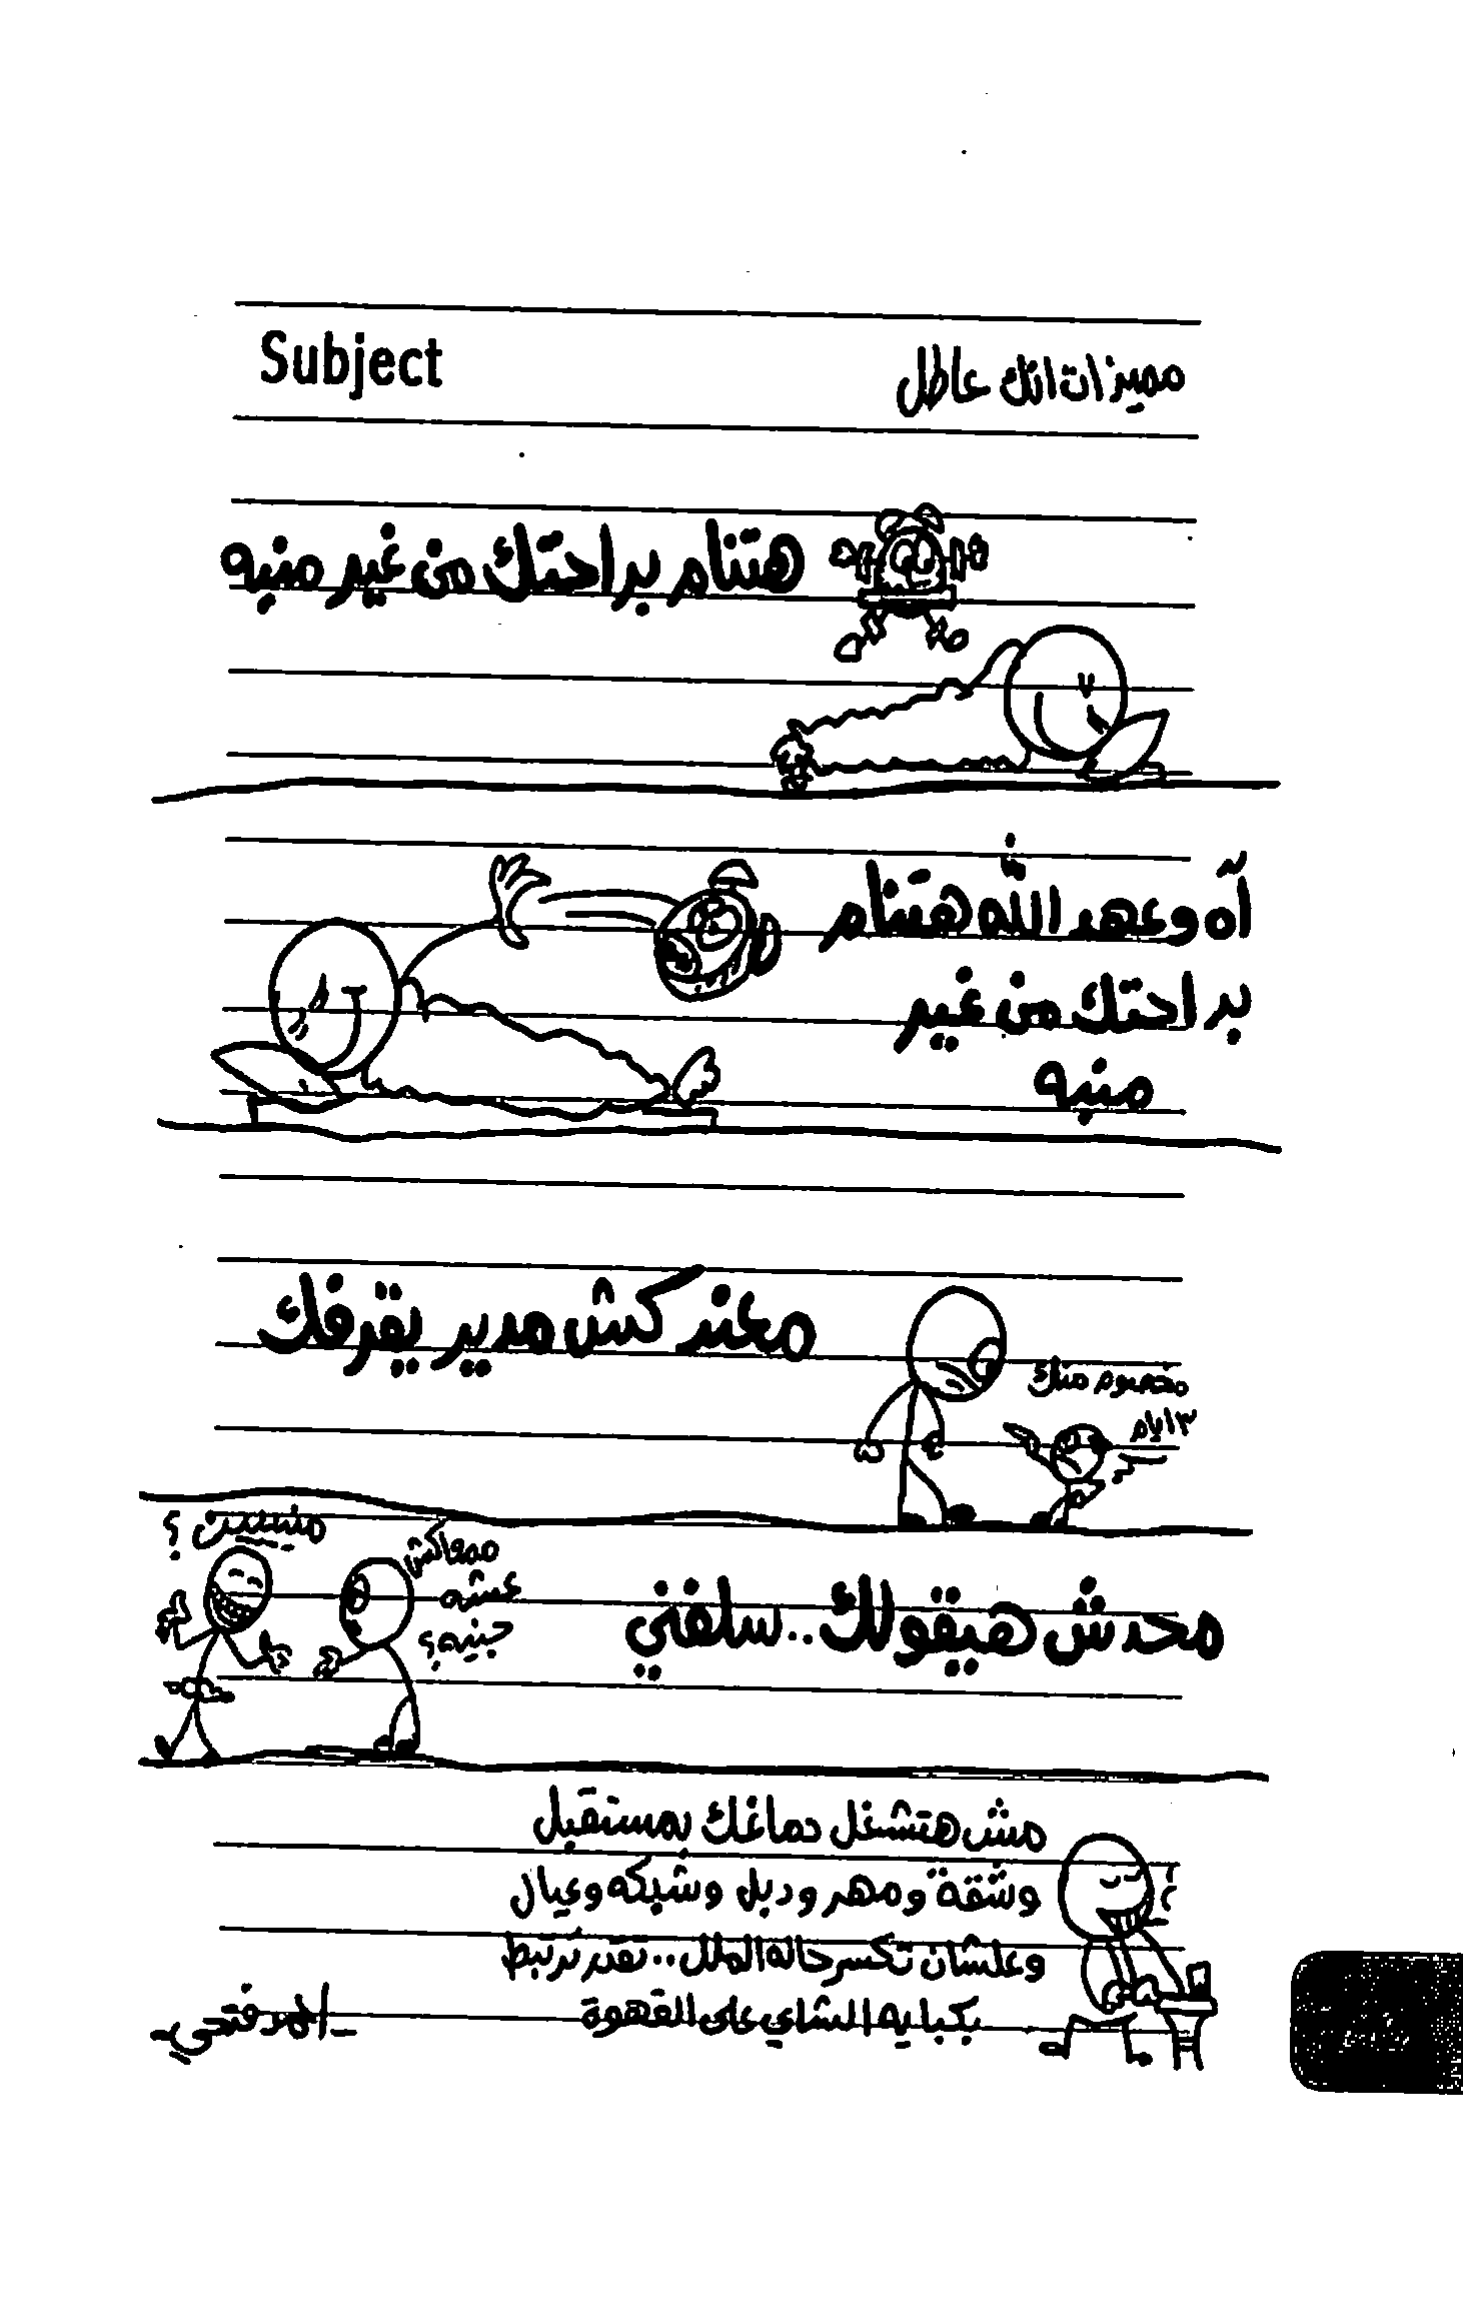 Subject
مميزات انك عاطل
هتنام براحتك من غير منبه
آه وعهد الله هتنام
براحتك من غير
منبه
معندكش مدير يقرفك
مخصوم منك
٣ ايام
محدش هيقولك..سلفني
ممعاكش
عشه
جنيه؟
مش هتشغل دماغك بمستقبل
وشقة ومهر ودبل وشبكه وعيال
وعلشان تكسر حاله الملل..تقدر ترتبط
بكبايه الشاي على القهوة